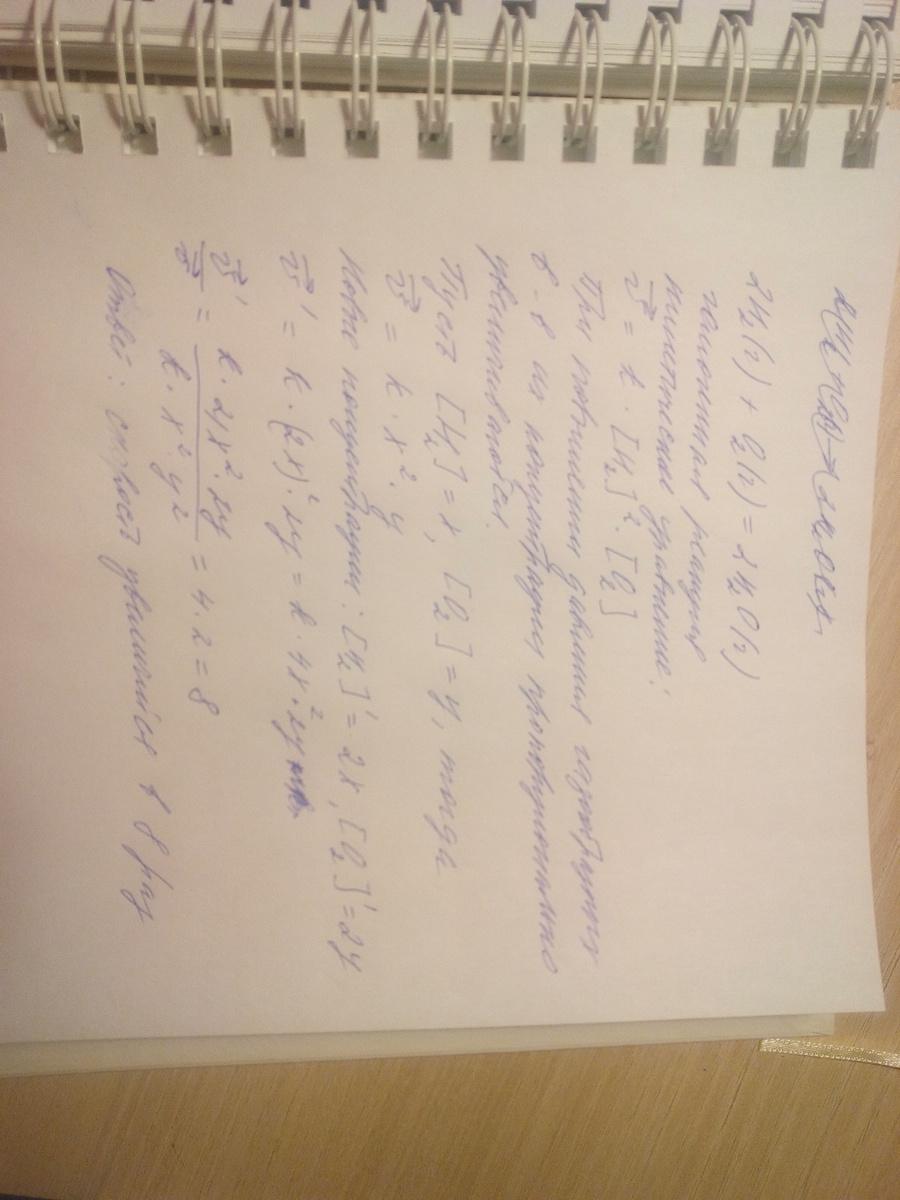 2H₂(г) + O₂(г) = 2H₂O(г)
гомогенная реакция
кинетическое уравнение:
v⃗ = k · [H₂]² · [O₂]
При повышении давления газообразных
в-в их концентрация пропорционально
увеличивается.
Пусть [H₂] = x, [O₂] = y, тогда
v⃗ = k · x² · y
Новые концентрации: [H₂]' = 2x, [O₂]' = 2y
v⃗' = k · (2x)² · 2y = k · 4x² · 2y
v⃗'/v⃗ = k · 4x² · 2y / k · x² · y = 4 · 2 = 8
Ответ: скорость увеличится в 8 раз